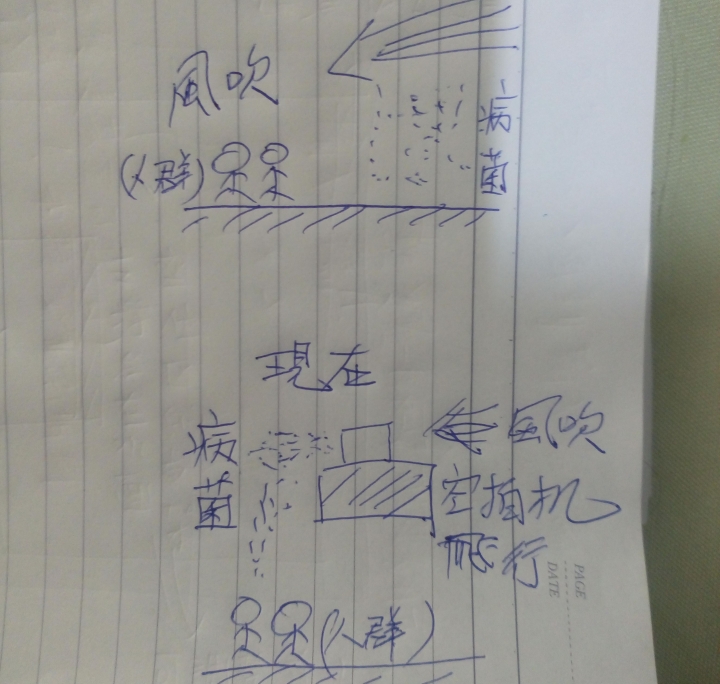 風吹
病菌
(人群)
現在
病菌
風吹
空拍机
飛行
(人群)
PAGE
DATE